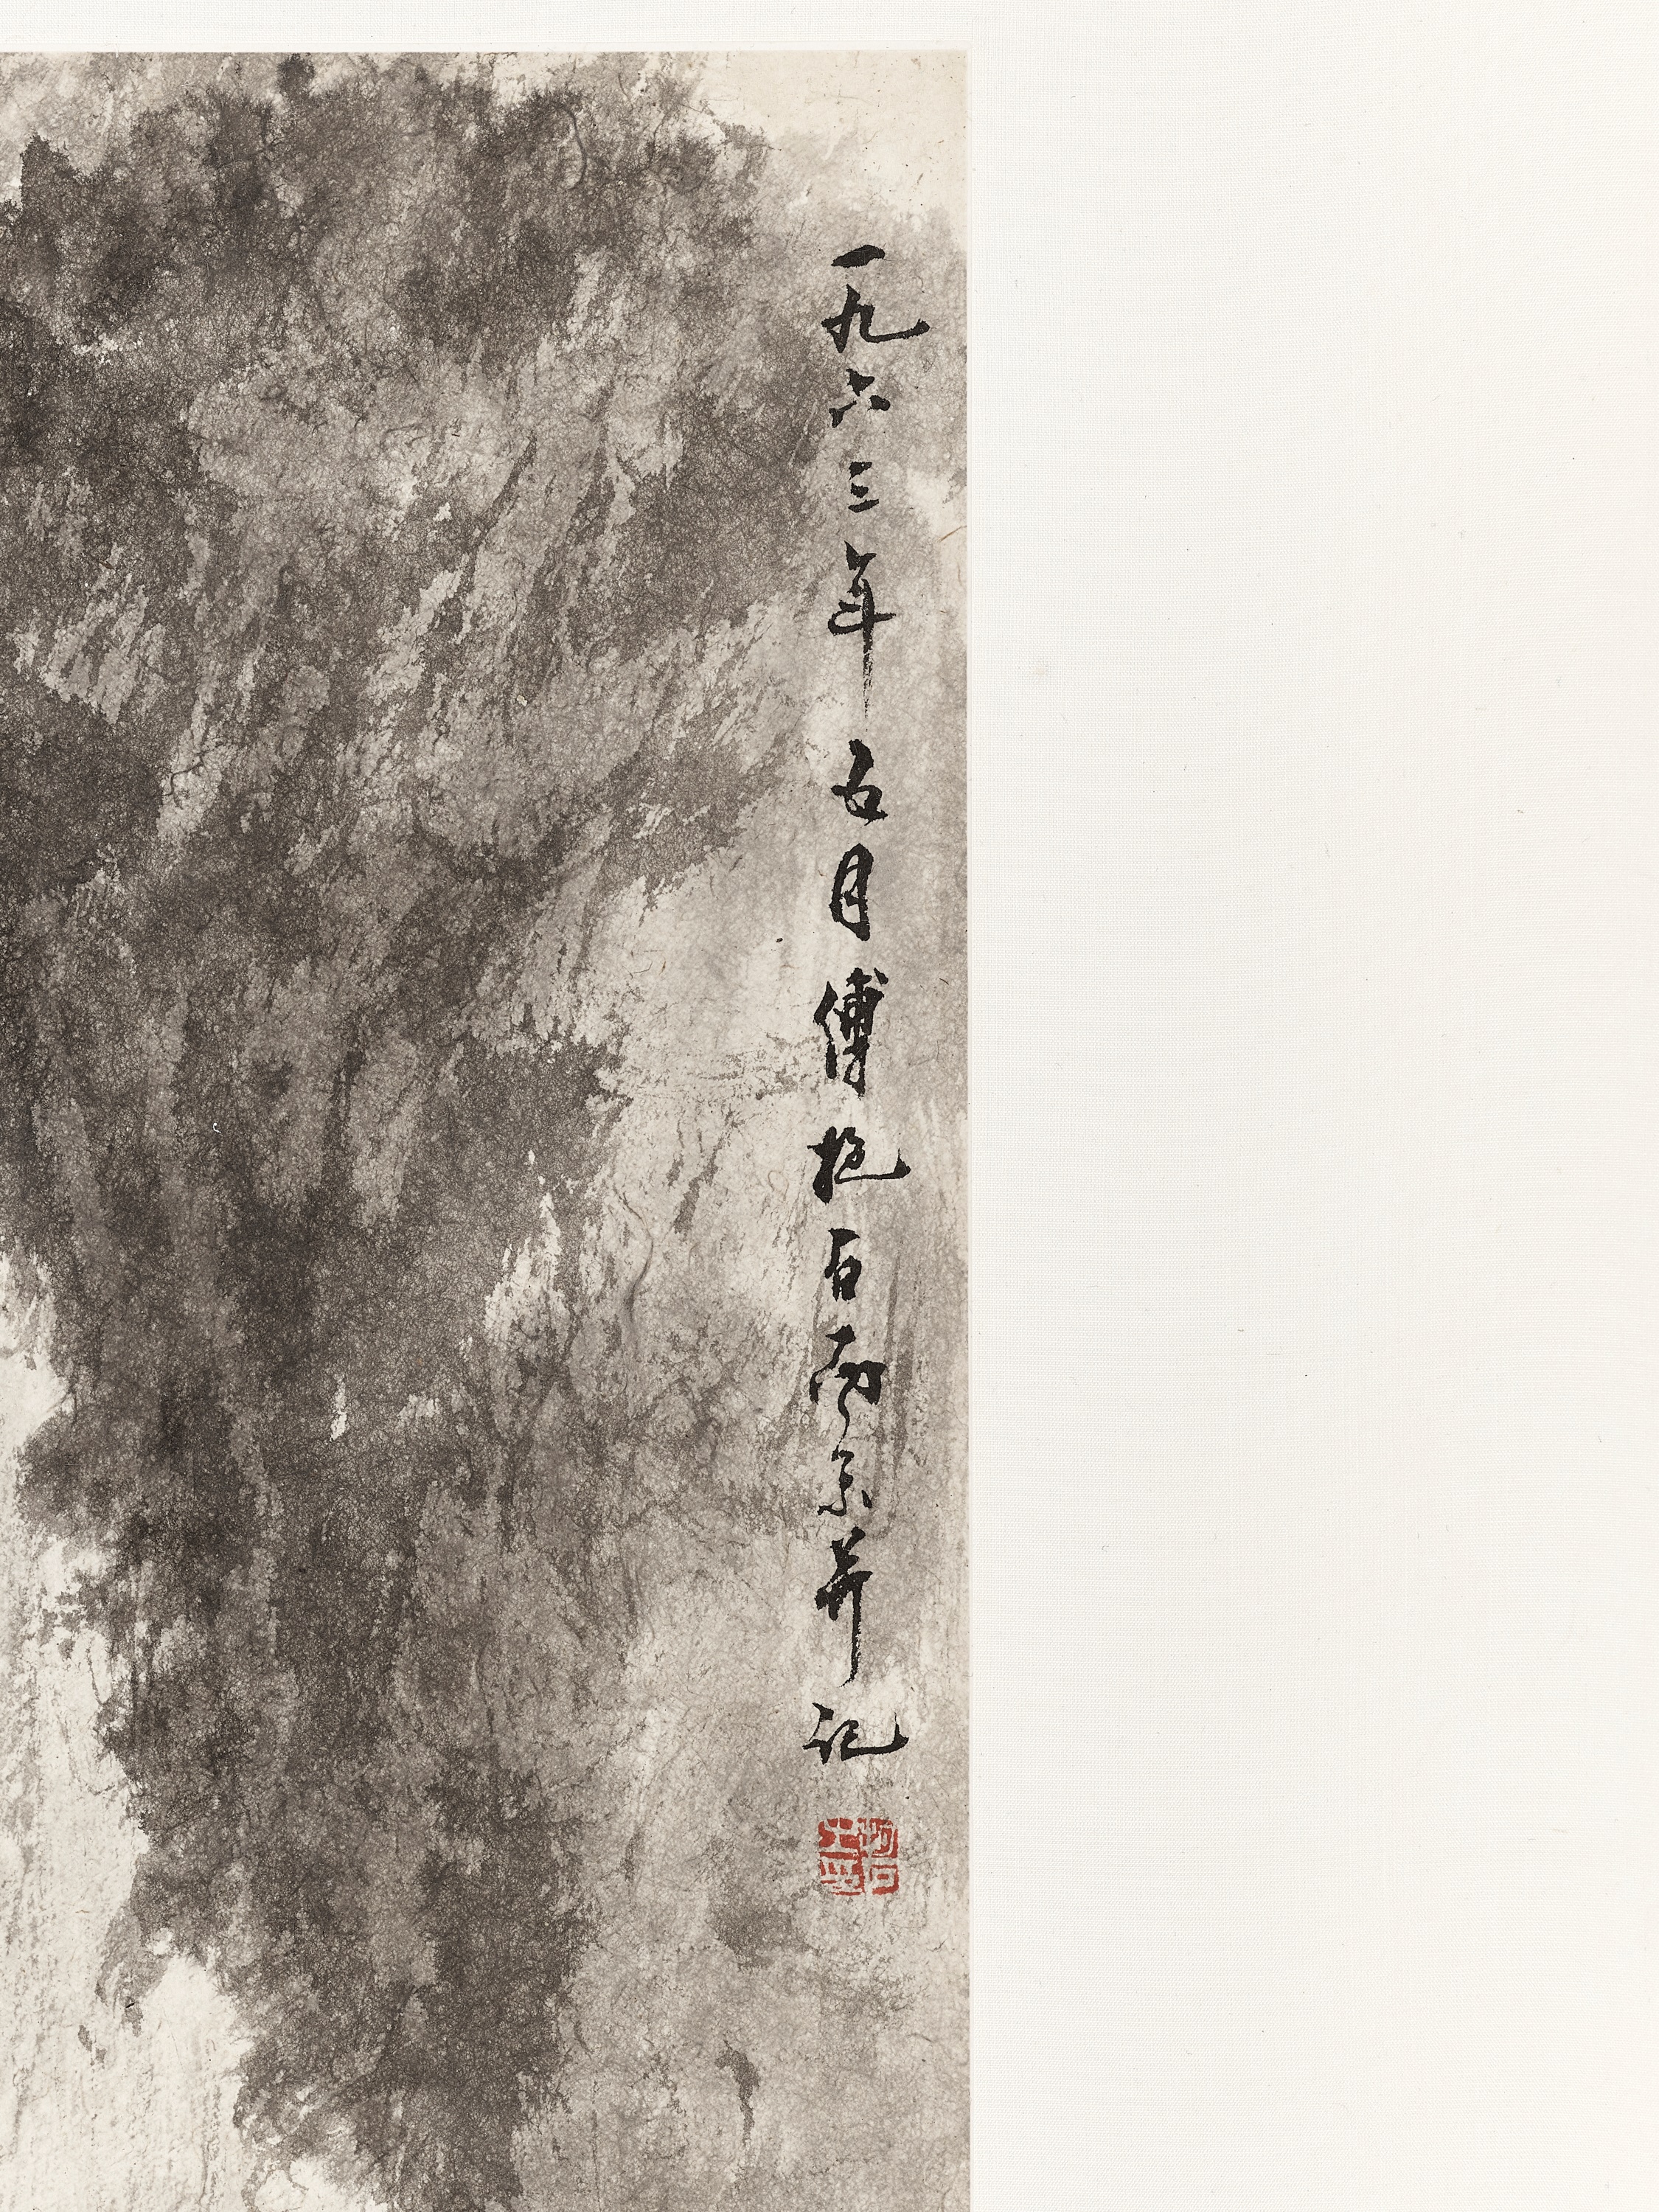 一九六三年五月傅抱石南京并記
抱石之印